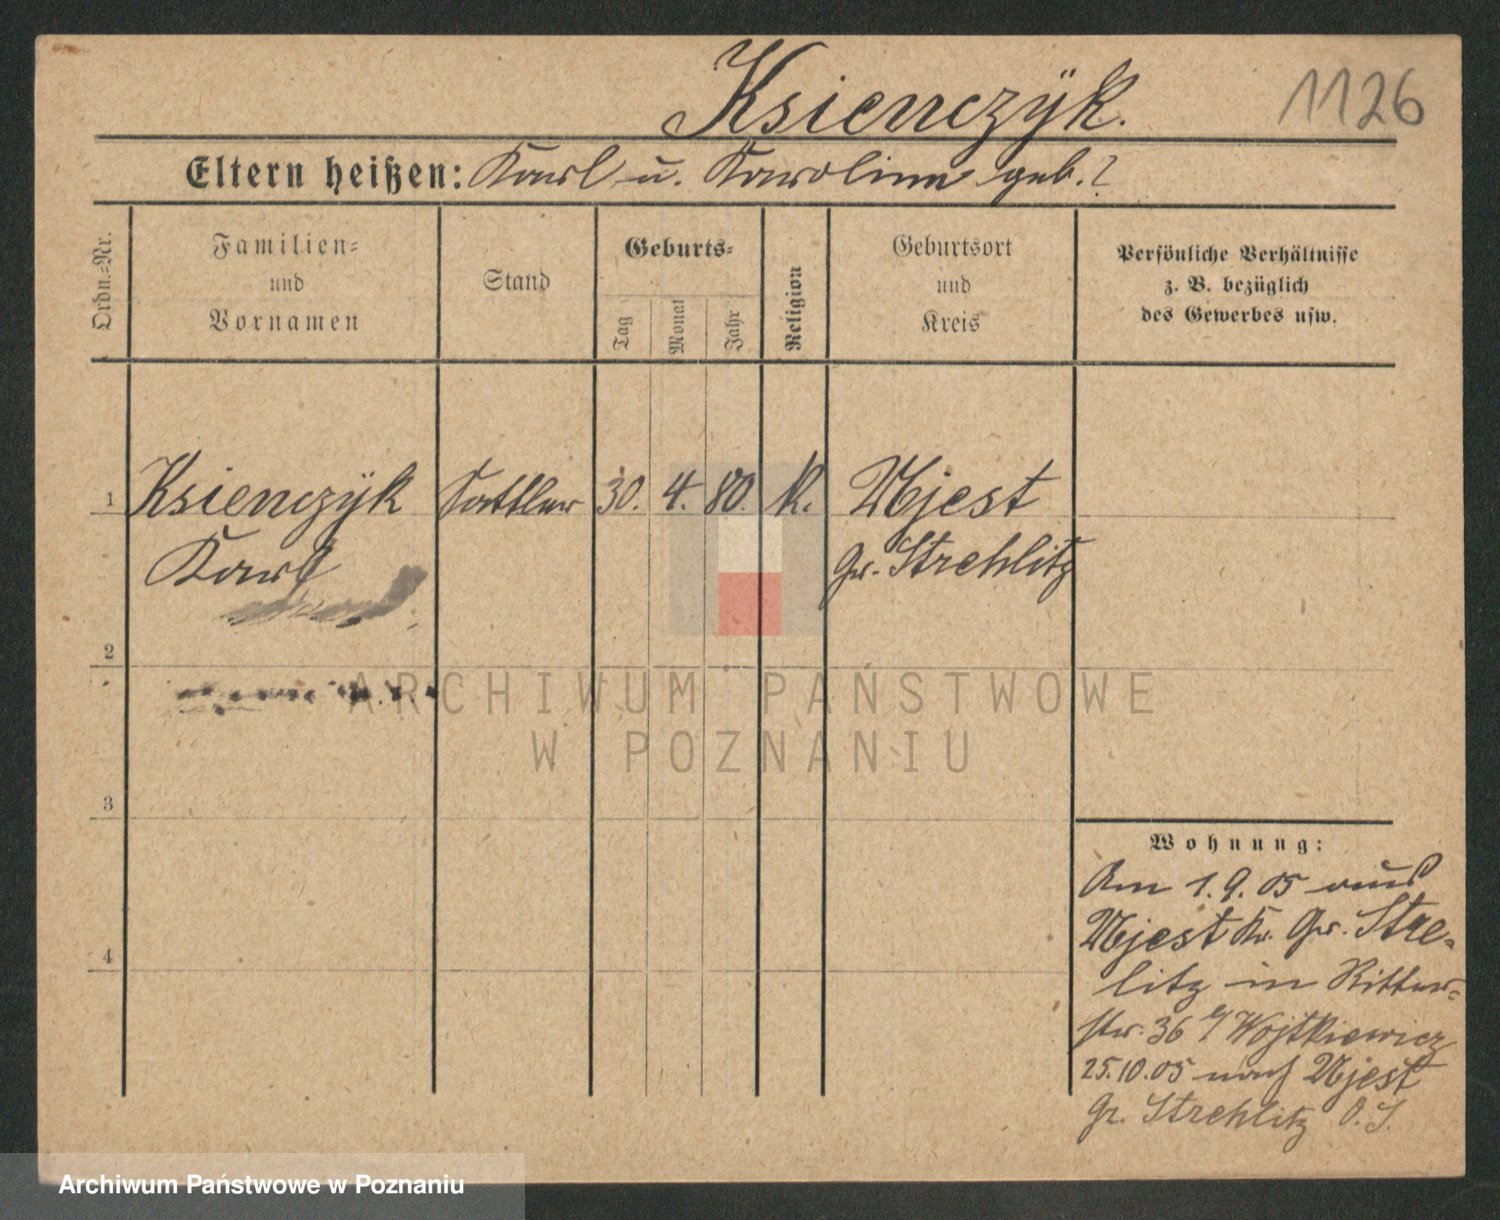 Ksienczÿk.
1126
Eltern heißen: Karl u. Karoline geb. ?
Ordn.=Nr.
Familien=
und
Vornamen
Stand
Geburts=
Tag
Monat
Jahr
Religion
Geburtsort
und
Kreis
Persönliche Verhältnisse
z. B. bezüglich
des Gewerbes usw.
1 Ksienczÿk Sattler 30. 4. 80. K. Ujest
Karl Gr. Strehlitz
2
3
4
Wohnung:
Am 1.9.05 aus
Ujest Kr. Gr. Stre=
litz in Ritter=
str. 36 b/ Wojtkiewicz
25.10.05 nach Ujest
Gr. Strehlitz O.S.
ARCHIWUM PAŃSTWOWE
W POZNANIU
Archiwum Państwowe w Poznaniu